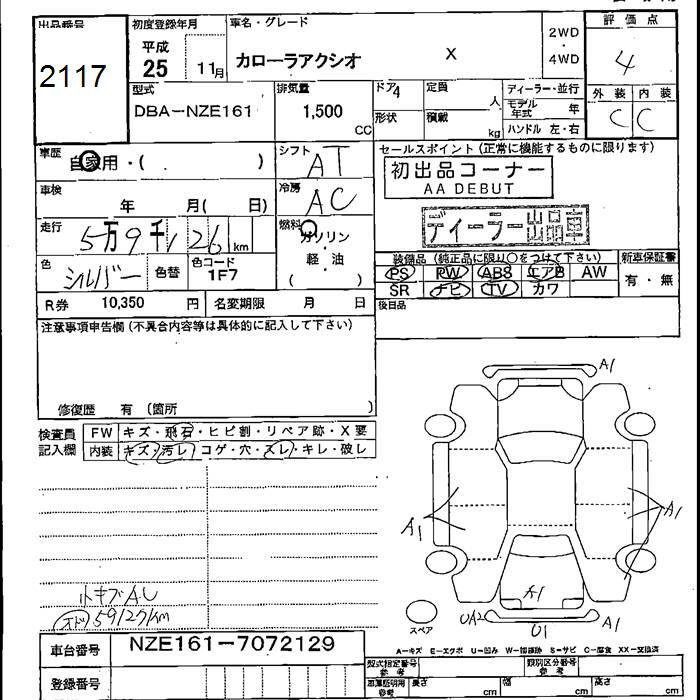 出品番号
2117
初度登録年月
平成
25 11月
車名・グレード
カローラアクシオ X
2WD
・
4WD
評価点
4
型式
DBA-NZE161
排気量
1,500
CC
ドア 4
形状
定員
人
積載
kg
ディーラー・並行
モデル年式 年
ハンドル 左・右
外装 内装
C C
車歴
自家用・( )
シフト
AT
セールスポイント(正常に機能するものに限ります)
初出品コーナー
AA DEBUT
ディーラー出品車
車検
年 月( 日)
冷房
AC
走行
5万9千126km
燃料
ガソリン
・
軽・油
( )
色
シルバー
色替
色コード
1F7
装備品(純正品に限り○をつけて下さい)
PS PW ABS エアB AW
SR ナビ TV カワ
新車保証書
有・無
R券 10,350 円
名変期限 月 日
後日品
注意事項申告欄(不具合内容等は具体的に記入して下さい)
修復歴 有 〔箇所 〕
検査員
記入欄
FW キズ・飛石・ヒビ割・リペア跡・X要
内装 キズ・汚レ・コゲ・穴・スレ・キレ・破レ
A1
A1
A1
A1
UA2
U1
A1
スペア
小キズAU
59127km
車台番号
NZE161-7072129
登録番号
A-キズ E-エクボ U-凹み W-補修跡 S-サビ C-腐食 XX-交換済
型式指定番号
参考
類別区分番号
参考
車庫証明用
参考
長さ cm
幅 cm
高さ cm